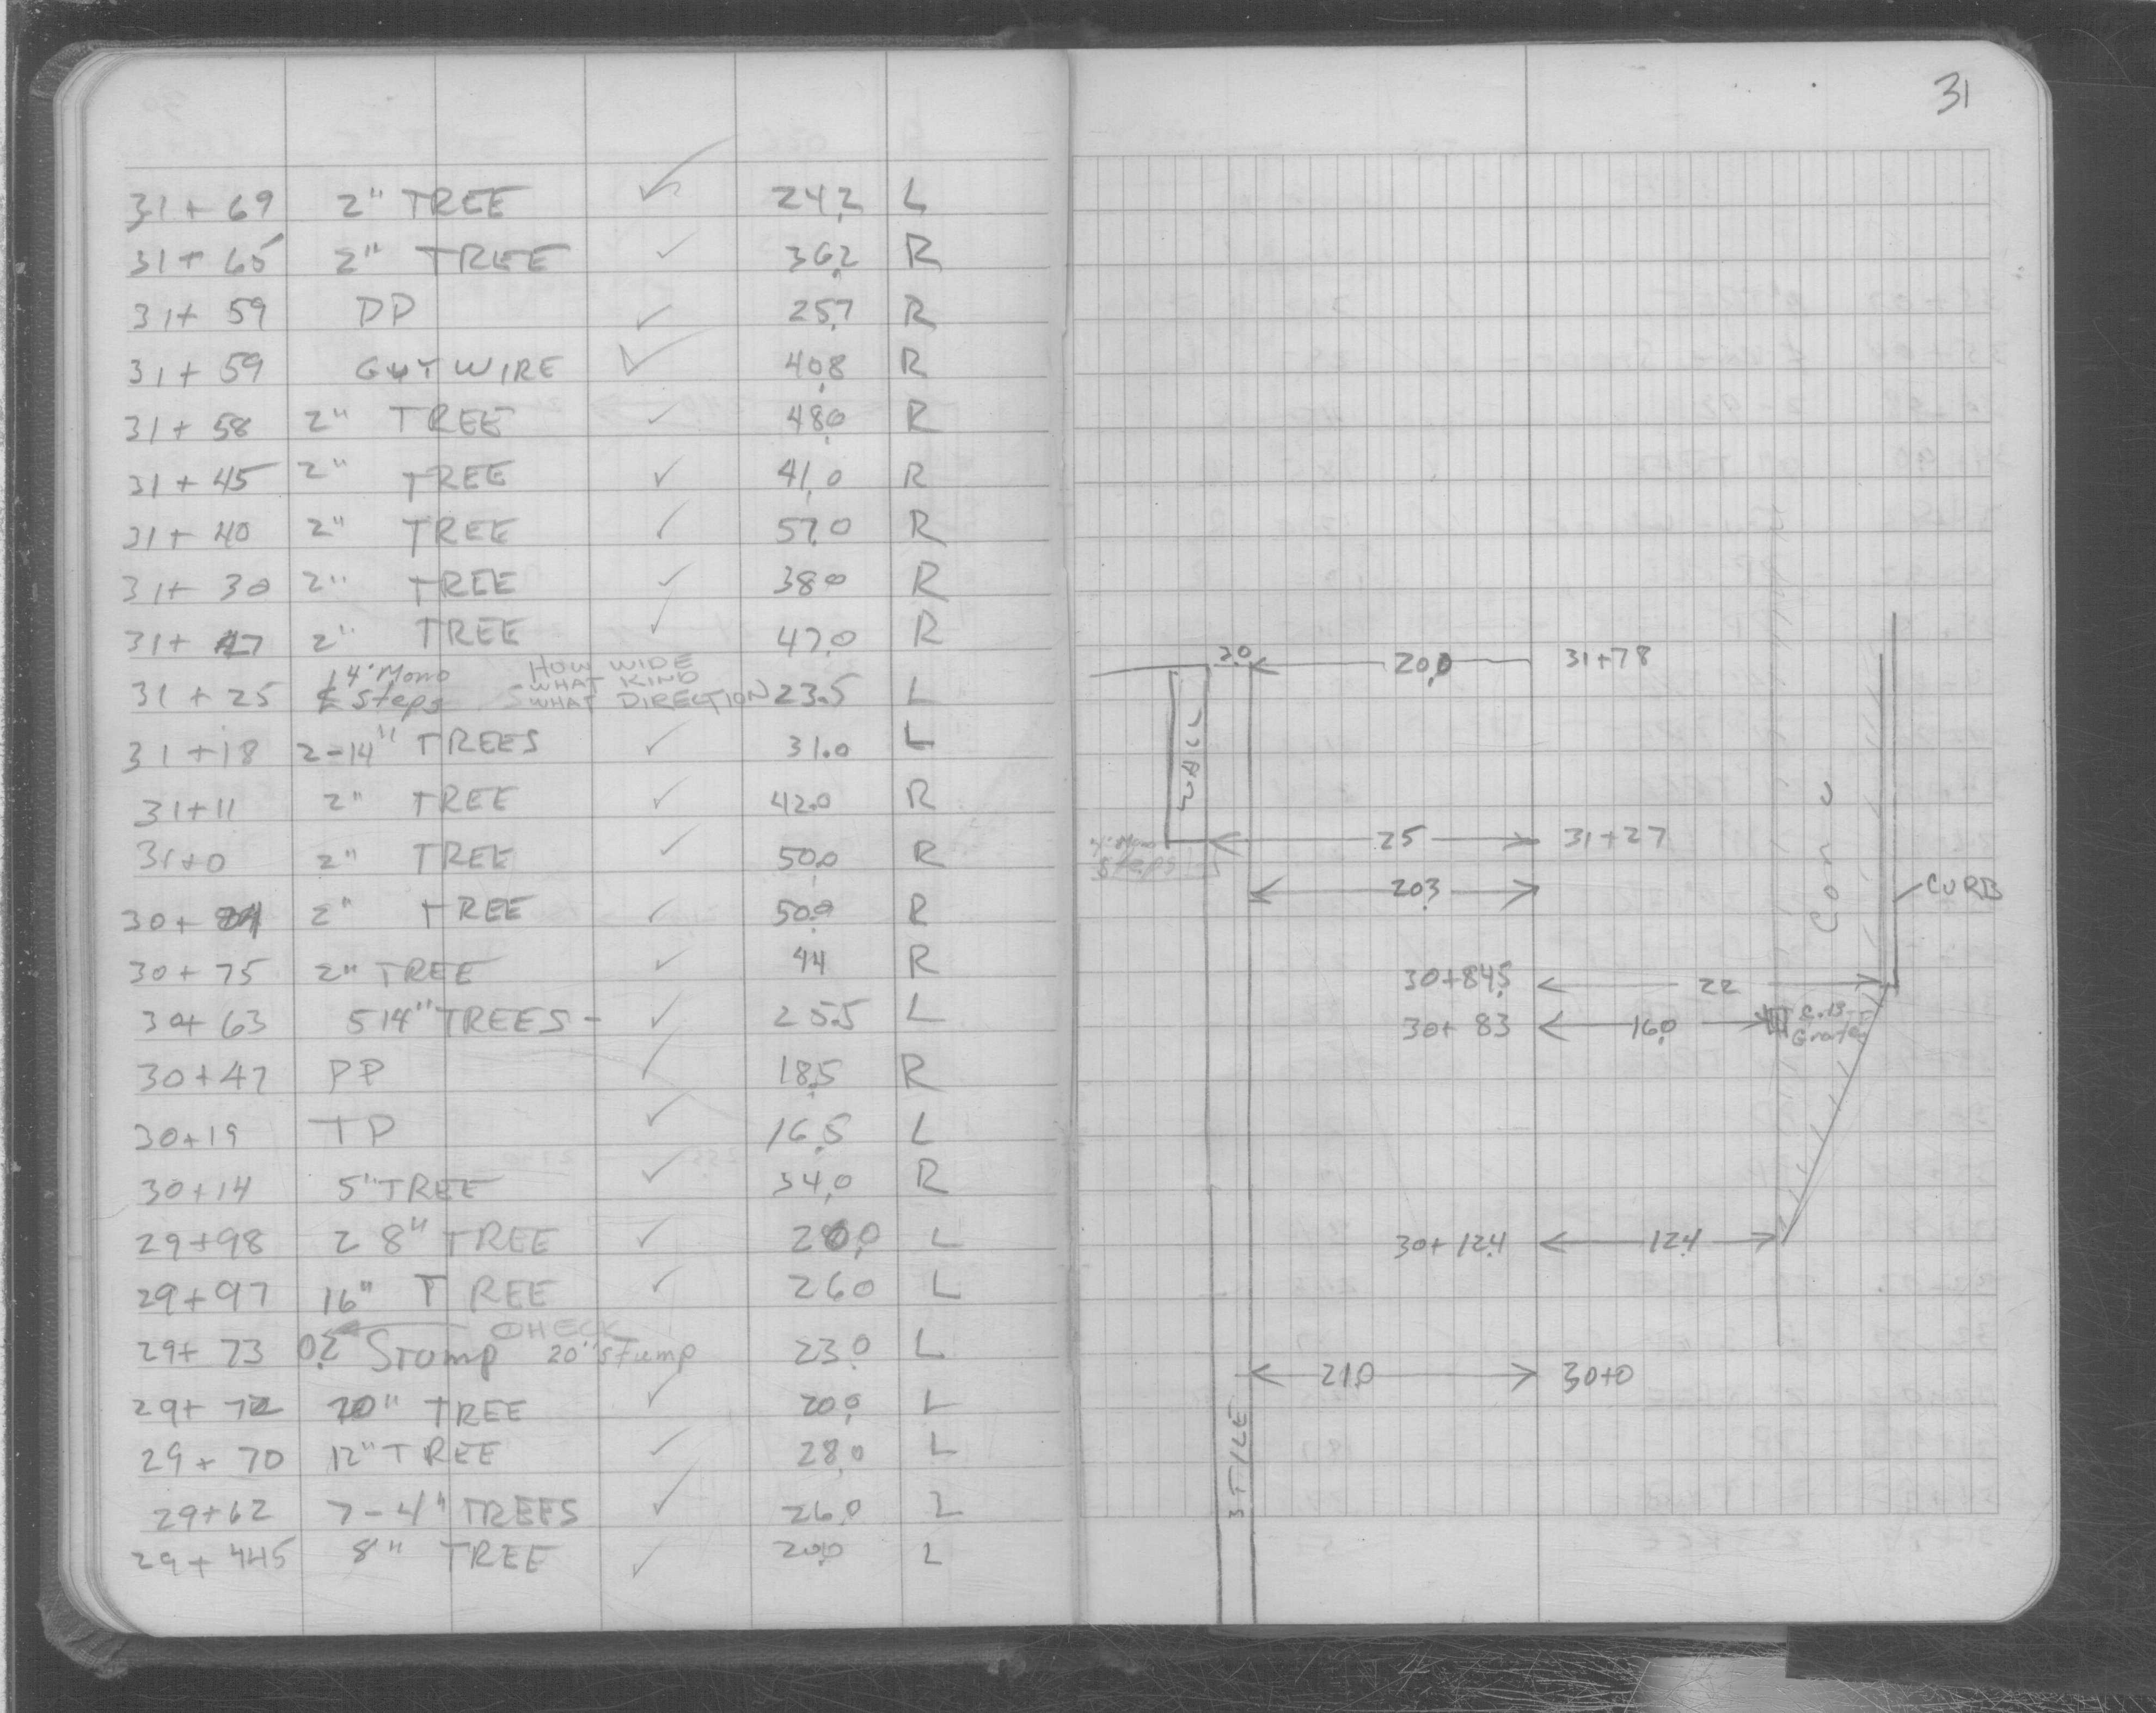 31
31+69 2" TREE ✓ 24.2 L
31+65 2" TREE ✓ 36.2 R
31+59 PP ✓ 25.7 R
31+59 GUY WIRE ✓ 40.8 R
31+58 2" TREE ✓ 48.0 R
31+45 2" TREE ✓ 41.0 R
31+40 2" TREE ✓ 57.0 R
31+30 2" TREE ✓ 38.0 R
31+ 2" TREE ✓ 47.0 R
4' Mono HOW WIDE
WHAT KIND
31+25 ₵ Steps WHAT DIRECTION 23.5 L
31+18 2-14" TREES ✓ 31.0 L
31+11 2" TREE ✓ 42.0 R
31+0 2" TREE ✓ 50.0 R
30+ 2" TREE ✓ 50.0 R
30+75 2" TREE ✓ 44 R
30+63 5 14" TREES - ✓ 25.5 L
30+47 PP ✓ 18.5 R
30+19 TP ✓ 16.5 L
30+14 5" TREE ✓ 34.0 R
29+98 2 8" TREE ✓ L
29+97 16" TREE ✓ 26.0 L
CHECK
29+73 Stump 20" stump 23.0 L
29+72 20" TREE ✓ 20.0 L
29+70 12" TREE ✓ 28.0 L
29+62 7-4" TREES ✓ 26.0 L
29+44.5 8" TREE ✓ 20.0 L
2.0 20.0 31+78
WALL
Conc
4' Mono
Steps
25 31+27
20.3
CURB
30+84.5 22
30+83 16.0 C.B.
Grate
30+12.4 12.4
21.0 30+0
3 TILE